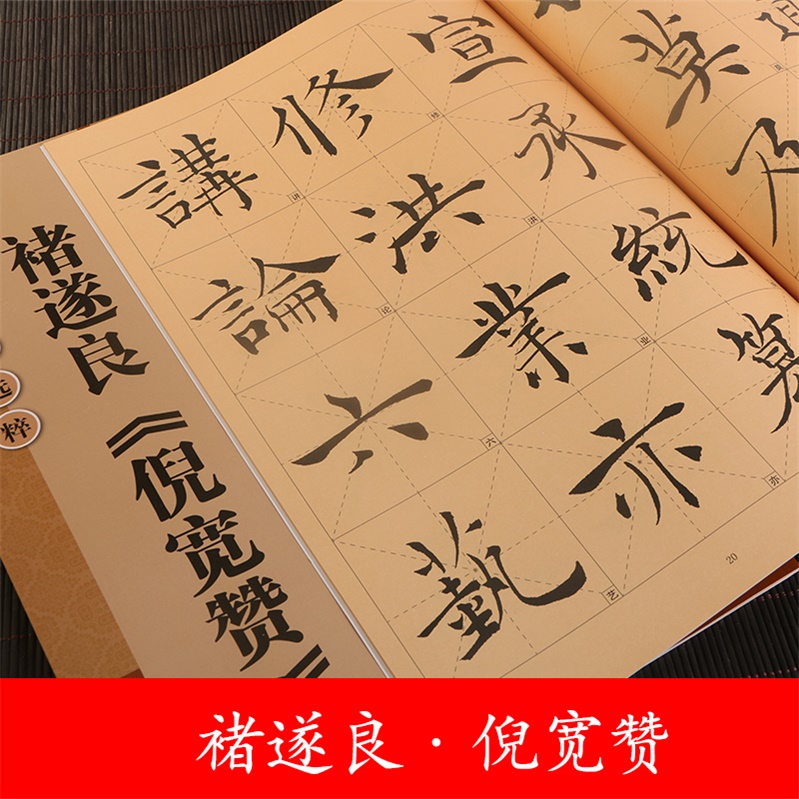 宣承統
修洪業亦
講論六藝
修
洪
业
亦
讲
论
六
艺
20
莫
乃
褚遂良《倪宽赞》
粹
褚遂良·倪宽赞